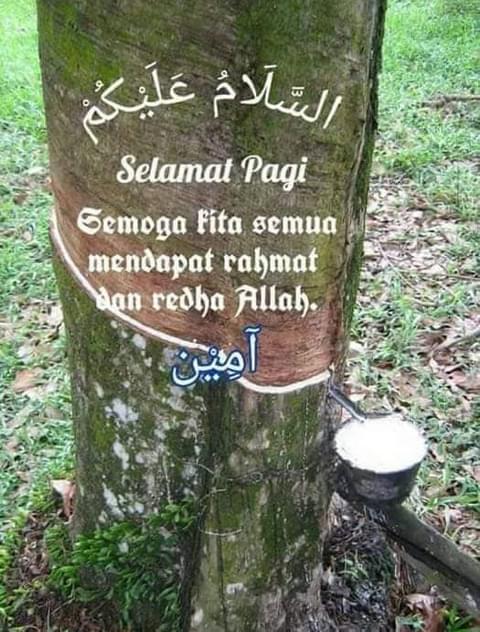 السَّلَامُ عَلَيْكُمْ
Selamat Pagi
Semoga kita semua
mendapat rahmat
dan redha Allah.
آمِيْن